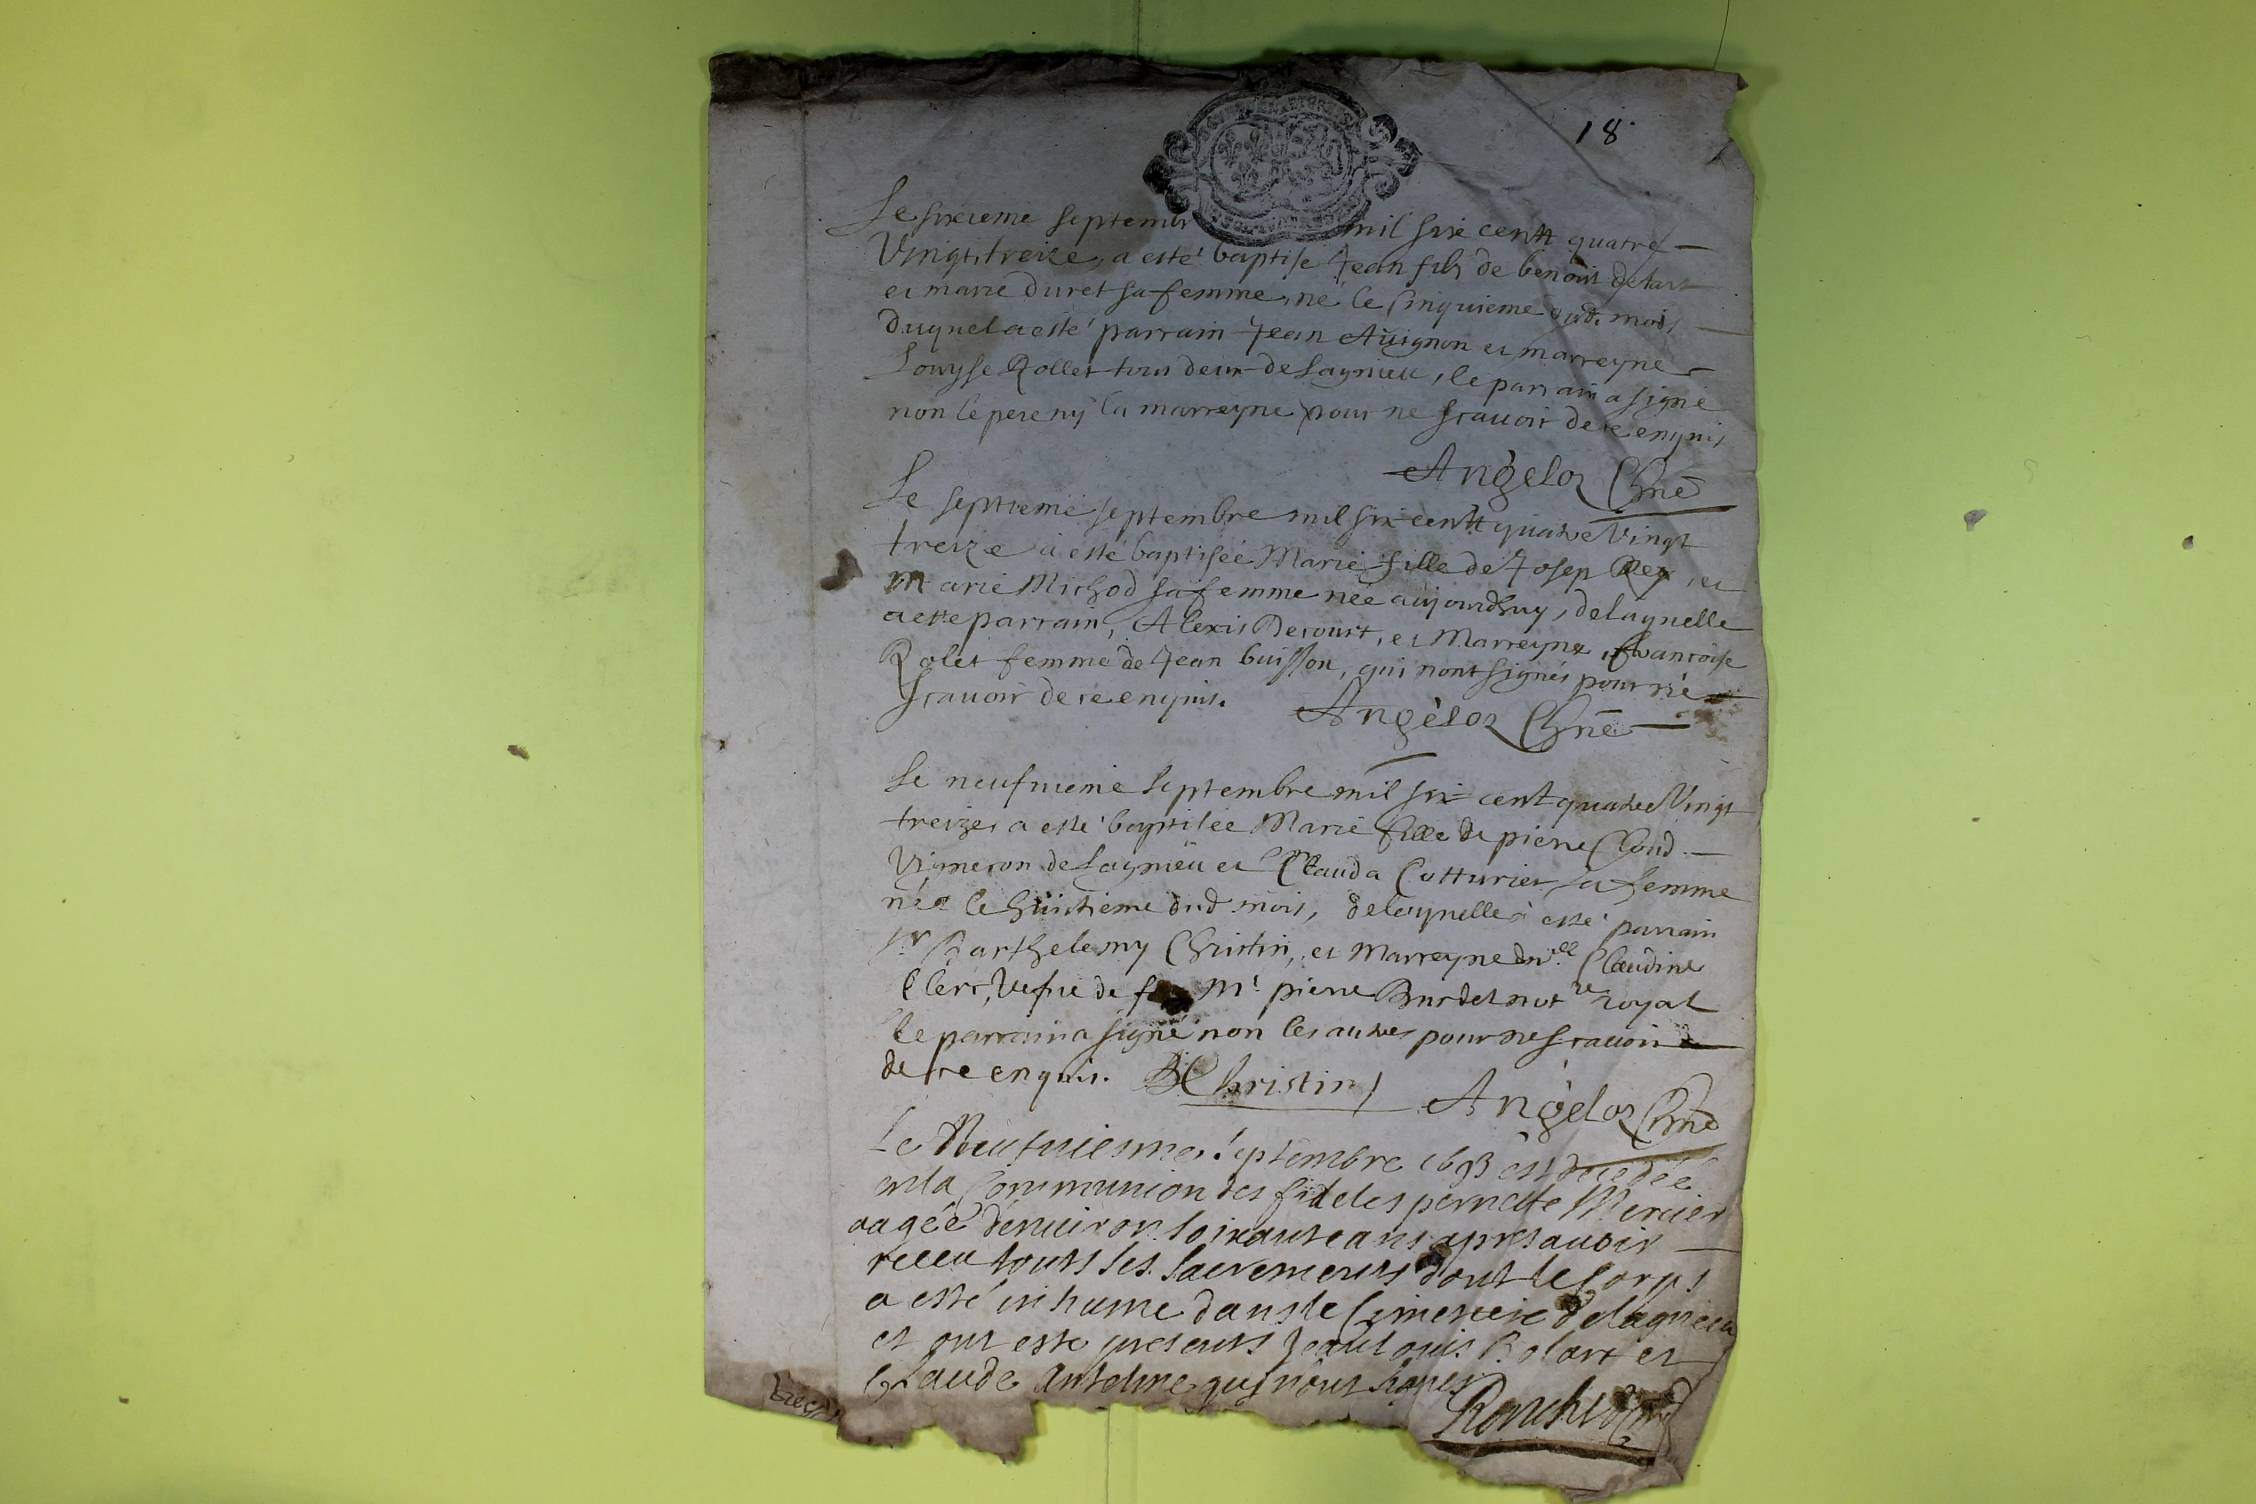 18
Le sixieme septembr mil six centt quatre
Vingt, treize, a esté baptise Jean fils de benoist
et marie Duret sa femme, né le cinquieme dud. mois
duquel a esté parrain Jean Avignon et marreyne
Louyse Rollet tous deux de Lagnieu, le parrain a signé
non le pere ny la marreyne pour ne scauoir de ce enquis
Angelot
Le septieme septembre mil six centt quatre Vingt
treize a esté baptisée Marie fille de Josep Rey, et
Marie Michod sa femme née aujourdhuy, de laquelle
a este parrain, Alexis Decourt, et Marreyne, francoise
Rolet femme de Jean buisson, qui nont signés pour ne
scauoir de ce enquis. Angelot
Le neufuieme septembre mil six cent quatre Vingt
treize, a esté baptisée Marie fille de pierre Cloud
Vigneron de Lagnieu et Clauda Cotturier sa femme
née le huictieme dud mois, de laquelle a esté parrain
sr Barthelemy Christin, et Marreyne dmelle Claudine
Clerc, Vefue de Mr pierre Burdet notre royal
le parrain a signé non les autres pour ne scauoir
de ce enquis. B Christin Angelot
Le Neufuiesme septembre 1693 est decedée
en la Communion des fideles pernette Mercier
aagée d'enuiron soixante ans apres auoir
receu touts ses sacrements dont le corps
a esté inhume dans le Cimetiere de lagnieu
et ont esté presents Jean Louis et
Claude Antelme qui n'ont signés